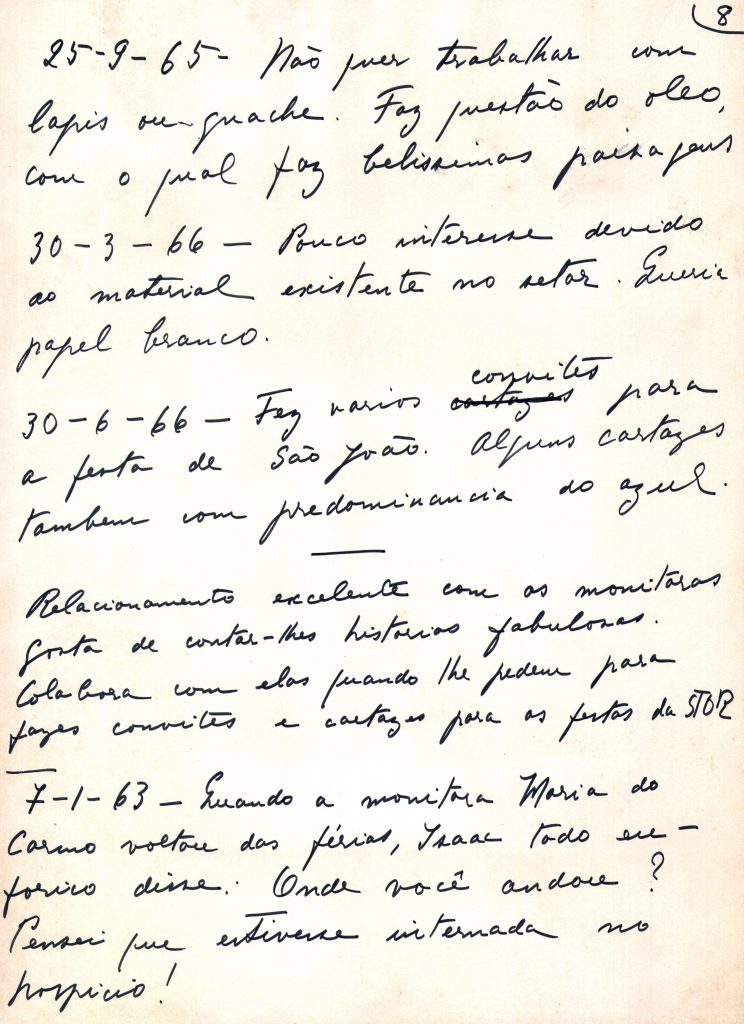 8
25-9-65- Não quer trabalhar com
lapis ou guache. Faz questão do oleo,
com o qual faz belissimas paisagens
30-3-66 - Pouco interesse devido
ao material existente no setor. Queria
papel branco.
30-6-66 - Fez varios cartazes convites para
a festa de São João. Alguns cartazes
tambem com predominancia do azul.
Relacionamento excelente com as monitoras
gosta de contar-lhes historias fabulosas.
Colabora com elas quando lhe pedem para
fazer convites e cartazes para as festas da STOR
7-1-63 - Quando a monitora Maria do
Carmo voltou das férias, Isaac todo eu-
forico disse: Onde você andou?
Pensei que estivesse internada no
hospicio!